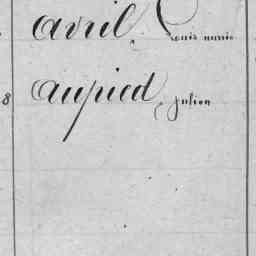 Avril, Louis marie
8 Aupied, Julien